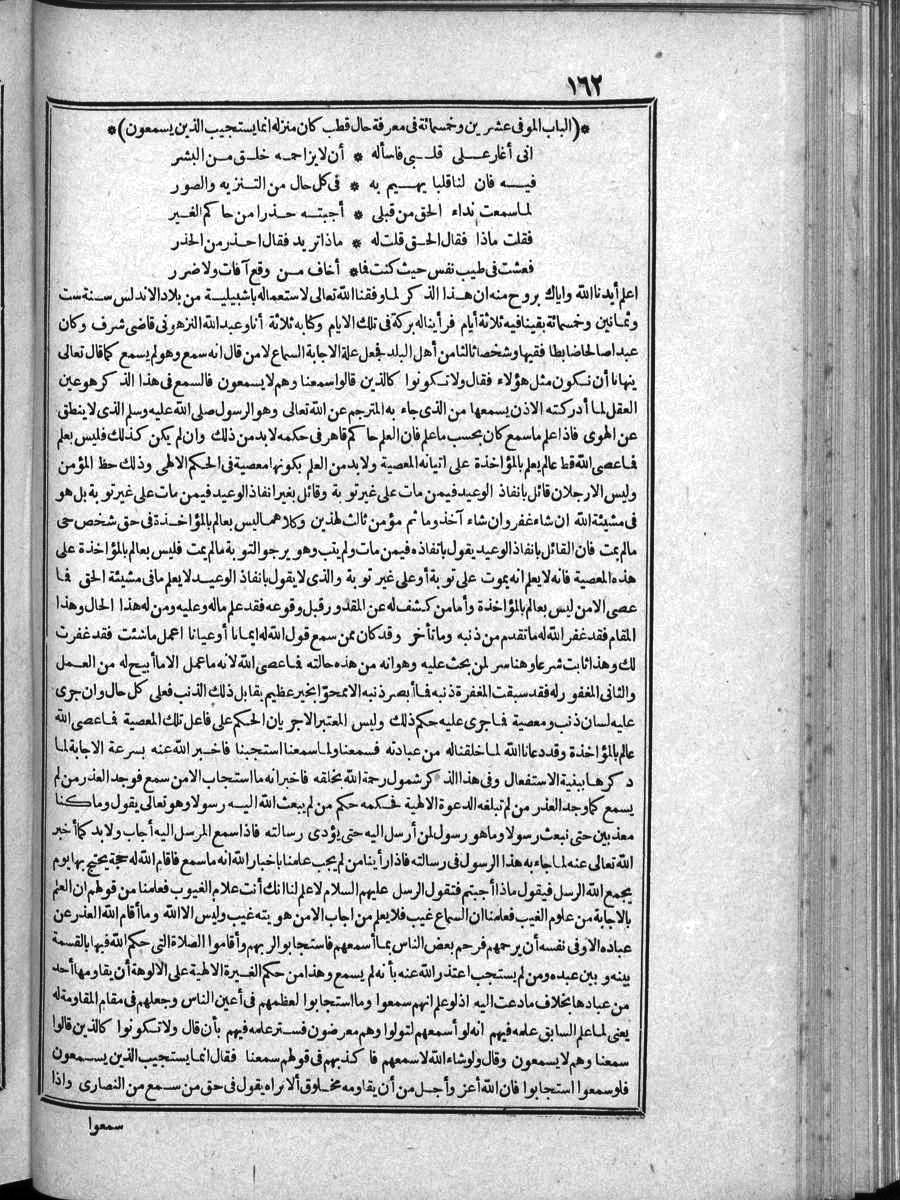 ١٦٢
* (الباب الموفى عشرين وخمسمائة فى معرفة حال قطب كان منزله انما يستجيب الذين يسمعون) *
انى أغار عـلى قلـبى فاسأله * أن لا يزاحمـه خلـق مـن البشر
فيـه فان لنا قلبا يهـيم به * فى كل حال من التـنزيه والصور
لما سمعت نداء الحق من قبلى * أجبتـه حـذرا من حاكم الغير
فقلت ماذا فقال الحـق قلت له * ماذا تريد فقال احـذر من الحذر
فعشت فى طيب نفس حيث كنت فما * أخاف مـن وقع آفات ولا ضرر
اعلم أيدنا الله واياك بروح منه ان هـذا الذكر لما وفقنا الله تعالى لاستعماله باشبيلية من بلاد الاندلس سـنة ست
وثمانين وخمسمائة بقينا فيه ثلاثة أيام فرأينا له بركة فى تلك الايام وكنا به ثلاثة أنا وعبد الله النزهونى قاضى شرف وكان
عبدا صالحا ضابطا فقيها وشخصا ثالثا من أهل البلد فجعل علة الاجابة السماع لا من قال انه سمع وهو لم يسمع كما قال تعالى
ينهانا أن نكون مثل هؤلاء فقال ولا تكونوا كالذين قالوا سمعنا وهم لا يسمعون فالسمع فى هذا الذكر هو عين
العقل لما أدركته الاذن بسمعها من الذى جاء به المترجم عن الله تعالى وهو الرسول صلى الله عليه وسلم الذى لا ينطق
عن الهوى فاذا علم ما سمع كان بحسب ما علم فان العلم حاكم قاهر فى حكمه لا بد من ذلك وان لم يكن كذلك فليس بعلم
فما عصى الله قط عالم يعلم بالمؤاخذة على اتيانه المعصية ولا بد من العلم بكونها معصية فى الحكم الالهى وذلك حظ المؤمن
وليس الا رجلان قائل بانفاذ الوعيد فيمن مات على غير توبة وقائل بغير انفاذ الوعيد فيمن مات على غير توبة بل هو
فى مشيئة الله ان شاء غفر وان شاء آخذ وما ثم مؤمن ثالث لهذين وكلاهما ليس بعالم بالمؤاخذة فى حق شخص حى
مالم يمت فان القائل بانفاذ الوعيد يقول بانفاذه فيمن مات ولم يتب وهو يرجو التوبة مالم يمت فليس بعالم بالمؤاخذة على
هذه المعصية فانه لا يعلم انه يموت على توبة أو على غير توبة والذى لا يقول بانفاذ الوعيـد لا يعلم ما فى مشيئة الحق فما
عصى الا من ليس بعالم بالمؤاخذة وأما من كشف له عن المقدور قبل وقوعه فقد علم ماله وعليه ومن له هذا الحال وهذا
المقام فقد غفر الله له ما تقدم من ذنبه وما تأخر وقد كان ممن سمع قول الله له ايمانا أو عيانا اعمل ما شئت فقد غفرت
لك وهذا ثابت شرعا وهنا سر لمن بحث عليه وهو انه من هذه حالته فما عصى الله لانه ما عمل الا ما أبيح له من العـمل
والثانى المغفور له فقد سبقت المغفرة ذنبه فما أبصر ذنبه الا ممحوا بخير عظيم يقابل ذلك الذنب فعلى كل حال وان جرى
عليه لسان ذنب ومعصية فما جرى عليه حكم ذلك وليس المعتبر الا جريان الحكم على فاعل تلك المعصية فما عصى الله
عالم بالمؤاخذة وقد دعانا الله لما خلقنا له من عبادته فسمعنا ولما سمعنا استجبنا فاخبر الله عنه بسرعة الاجابة لما
ذكرها ببنية الاستفعال وفى هذا الذكر شمول رحمة الله بخلقه فاخبر انه ما استجاب الا من سمع فوجد العذر من لم
يسمع كما وجد العذر من لم تبلغه الدعوة الالهية فحكمه حكم من لم يبعث الله اليـه رسولا وهو تعالى يقول وما كنا
معذبين حتى نبعث رسولا وما هو رسول لمن أرسل اليه حتى يؤدى رسالته فاذا سمع المرسل اليه أجاب ولا بد كما أخبر
الله تعالى عنه لما جاء به هذا الرسول فى رسالته فاذا رأينا من لم يجب علمنا باخبار الله انه ما سمع فاقام الله له حجة يحتج بها يوم
يجمع الله الرسل فيقول ماذا أجبتم فتقول الرسل عليهم السلام لا علم لنا انك أنت علام الغيوب فعلمنا من قولهم ان العلم
بالاجابة من علوم الغيب فعلمنا ان السماع غيب فلا يعلم من اجاب الا من هويته غيب وليس الا الله وما أقام الله العذر عن
عباده الا وفى نفسه أن يرحمهم فرحم بعض الناس بما أسمعهم فاستجابوا لربهم وأقاموا الصلاة التى حكم الله فيها بالقسمة
بينه وبين عبده ومن لم يستجب اعتذر الله عنه بأنه لم يسمع وهذا من حكم الغيرة الالهية على الالوهة أن يقاومها أحد
من عبادها بخلاف ما دعت اليه اذ لو علم انهم سمعوا وما استجابوا لعظمهم فى أعين الناس وجعلهم فى مقام المقاومة له
يعنى لما علم السابق علمه فيهم انه لو أسمعهم لتولوا وهم معرضون فستر علمه فيهم بأن قال ولا تكونوا كالذين قالوا
سمعنا وهم لا يسمعون وقال ولو شاء الله لاسمعهم فاكذبهم فى قولهم سمعنا فقال انما يستجيب الذين يسـمعون
فلو سمعوا استجابوا فان الله أعز وأجل من أن يقاومه مخلوق ألا تراه يقول فى حق من سـمع من النصارى واذا
سمعوا